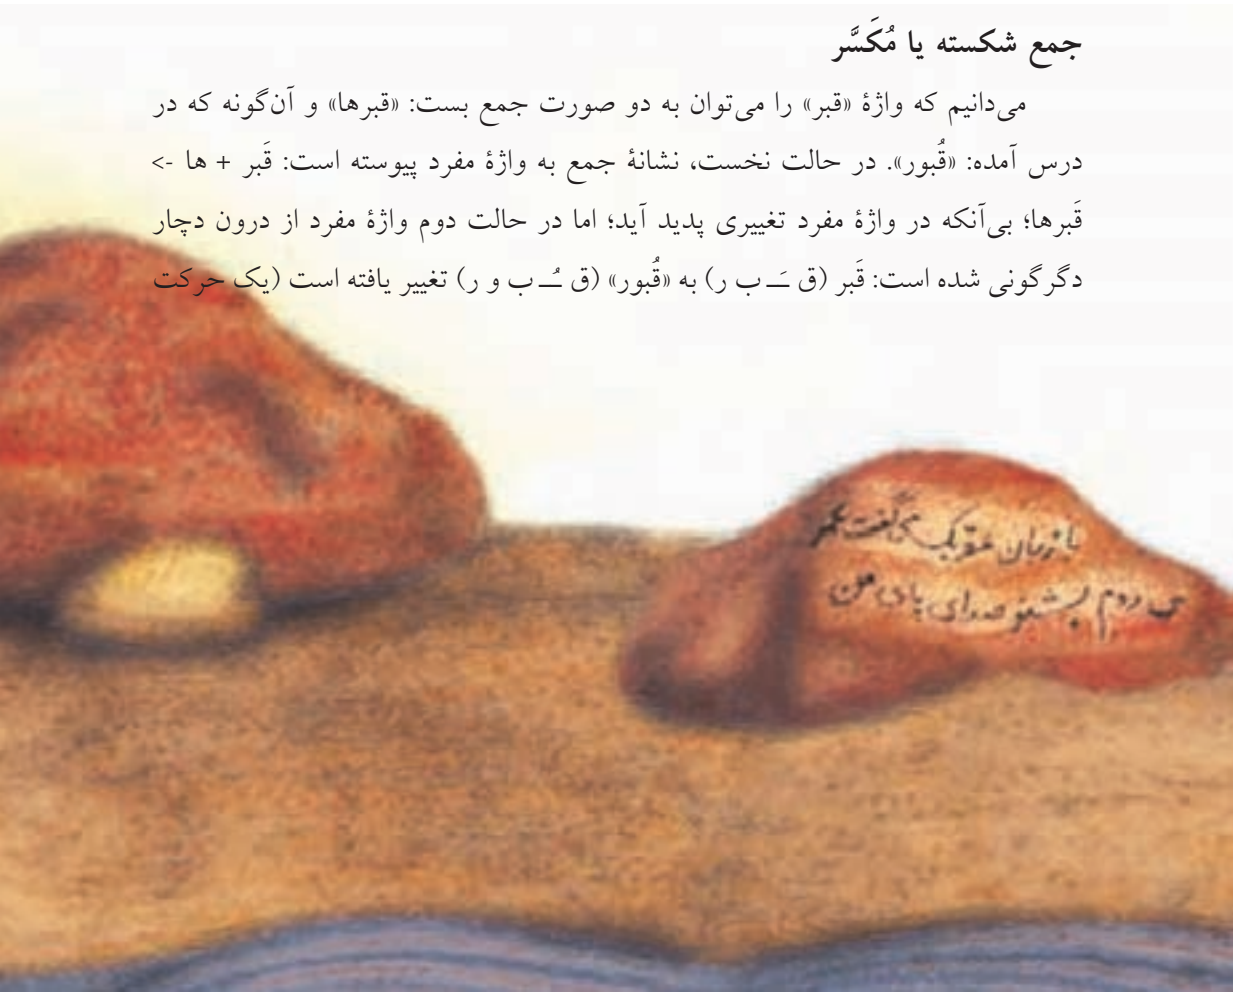 جمع شکسته یا مُکَسَّر
می‌دانیم که واژهٔ «قبر» را می‌توان به دو صورت جمع بست: «قبرها» و آن‌گونه که در
درس آمده: «قُبور». در حالت نخست، نشانهٔ جمع به واژهٔ مفرد پیوسته است: قَبر + ها ->
قَبرها؛ بی‌آنکه در واژهٔ مفرد تغییری پدید آید؛ اما در حالت دوم واژهٔ مفرد از درون دچار
دگرگونی شده است: قَبر (ق ـَـ ب ر) به «قُبور» (ق ـُـ ب و ر) تغییر یافته است (یک حرکت
با زبان می‌گفت عمر
می روم بشنو صدای پای من